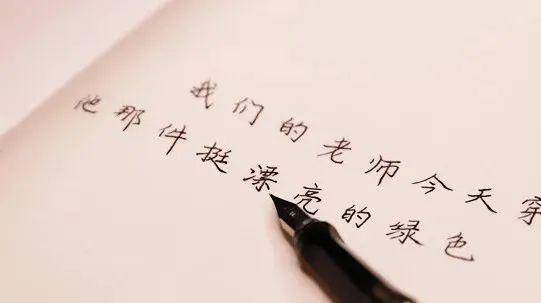 我们的老师今天穿
他那件挺漂亮的绿色